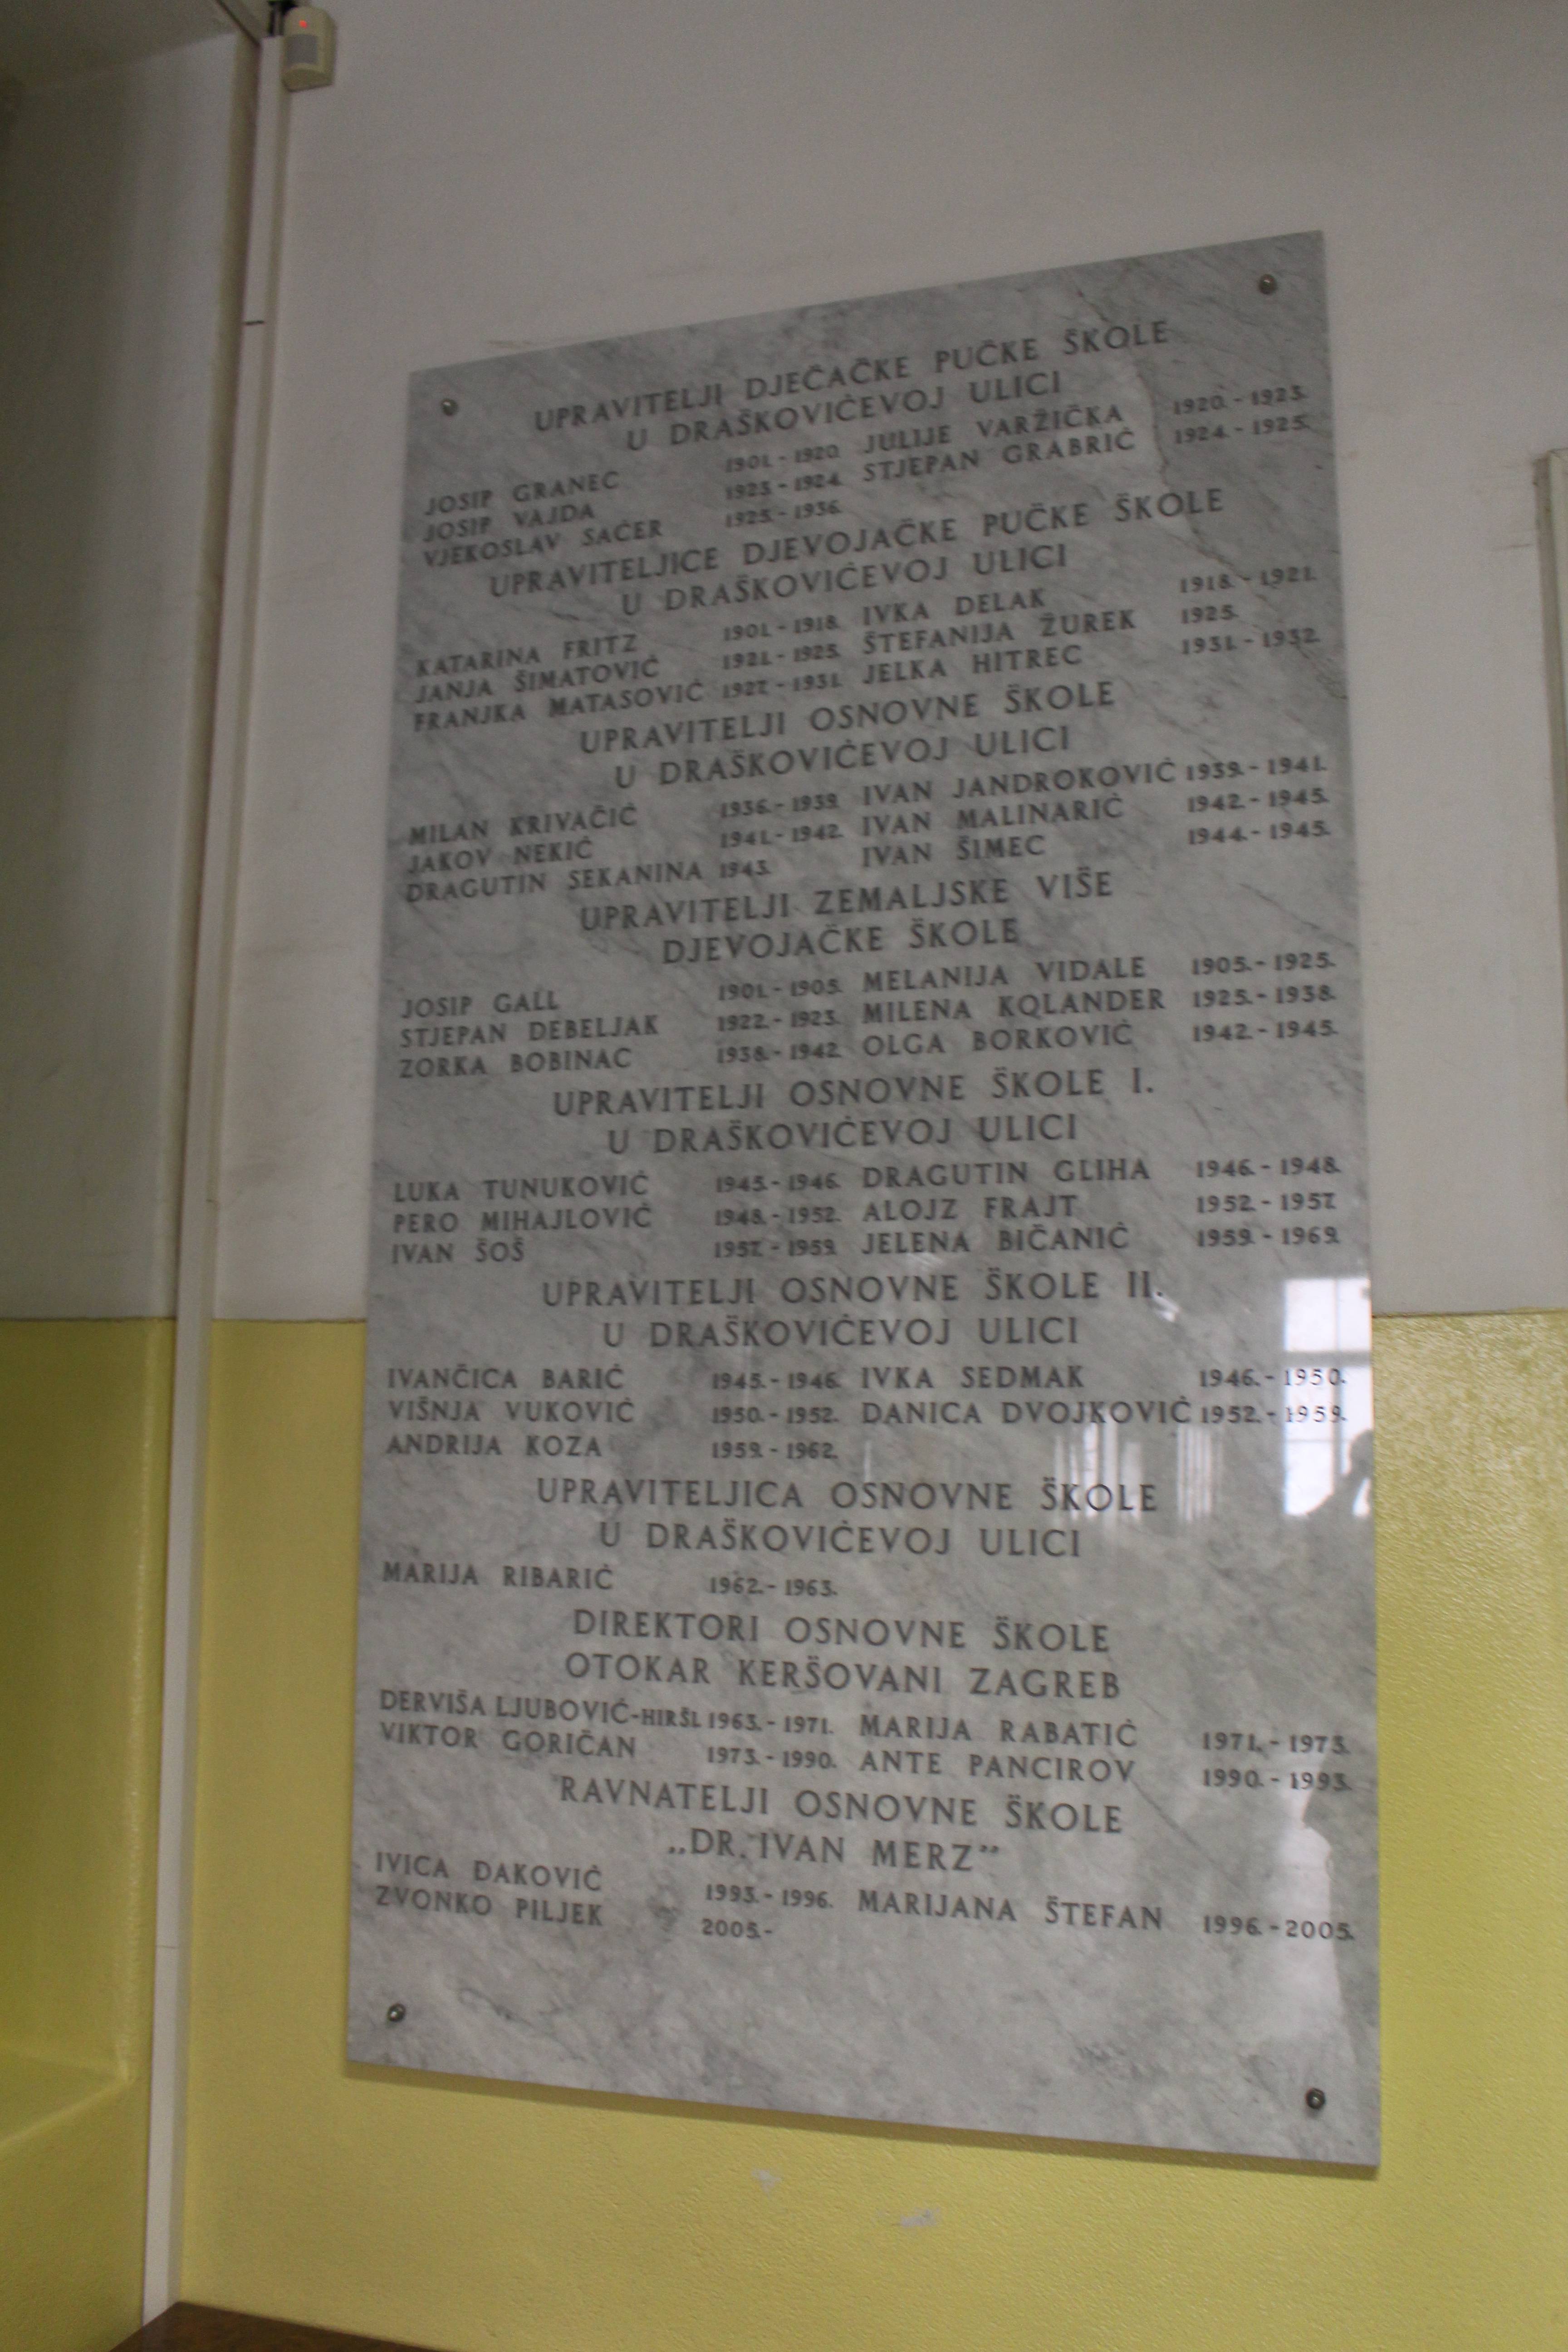 UPRAVITELJI DJEČAČKE PUČKE ŠKOLE
U DRAŠKOVIĆEVOJ ULICI
JOSIP GRANEC 1901.-1920. JULIJE VARŽIČKA 1920.-1923.
JOSIP VAJDA 1923.-1924. STJEPAN GRABRIĆ 1924.-1925.
VJEKOSLAV SAĆER 1925.-1936.
UPRAVITELJICE DJEVOJAČKE PUČKE ŠKOLE
U DRAŠKOVIĆEVOJ ULICI
KATARINA FRITZ 1901.-1918. IVKA DELAK 1918.-1921.
JANJA ŠIMATOVIĆ 1921.-1925. ŠTEFANIJA ŽUREK 1925.
FRANJKA MATASOVIĆ 1927.-1931. JELKA HITREC 1931.-1932.
UPRAVITELJI OSNOVNE ŠKOLE
U DRAŠKOVIĆEVOJ ULICI
MILAN KRIVAČIĆ 1936.-1939. IVAN JANDROKOVIĆ 1939.-1941.
JAKOV NEKIĆ 1941.-1942. IVAN MALINARIĆ 1942.-1945.
DRAGUTIN SEKANINA 1943. IVAN ŠIMEC 1944.-1945.
UPRAVITELJI ZEMALJSKE VIŠE
DJEVOJAČKE ŠKOLE
JOSIP GALL 1901.-1905. MELANIJA VIDALE 1905.-1925.
STJEPAN DEBELJAK 1922.-1923. MILENA KOLANDER 1925.-1938.
ZORKA BOBINAC 1938.-1942. OLGA BORKOVIĆ 1942.-1945.
UPRAVITELJI OSNOVNE ŠKOLE I.
U DRAŠKOVIĆEVOJ ULICI
LUKA TUNUKOVIĆ 1945.-1946. DRAGUTIN GLIHA 1946.-1948.
PERO MIHAJLOVIĆ 1948.-1952. ALOJZ FRAJT 1952.-1957.
IVAN ŠOŠ 1957.-1959. JELENA BIČANIĆ 1959.-1969.
UPRAVITELJI OSNOVNE ŠKOLE II.
U DRAŠKOVIĆEVOJ ULICI
IVANČICA BARIĆ 1945.-1946. IVKA SEDMAK 1946.-1950.
VIŠNJA VUKOVIĆ 1950.-1952. DANICA DVOJKOVIĆ 1952.-1959.
ANDRIJA KOZA 1959.-1962.
UPRAVITELJICA OSNOVNE ŠKOLE
U DRAŠKOVIĆEVOJ ULICI
MARIJA RIBARIĆ 1962.-1963.
DIREKTORI OSNOVNE ŠKOLE
OTOKAR KERŠOVANI ZAGREB
DERVIŠA LJUBOVIĆ-HIRŠL 1963.-1971. MARIJA RABATIĆ 1971.-1973.
VIKTOR GORIČAN 1973.-1990. ANTE PANCIROV 1990.-1993.
RAVNATELJI OSNOVNE ŠKOLE
„DR. IVAN MERZ”
IVICA ĐAKOVIĆ 1993.-1996. MARIJANA ŠTEFAN 1996.-2005.
ZVONKO PILJEK 2005.-